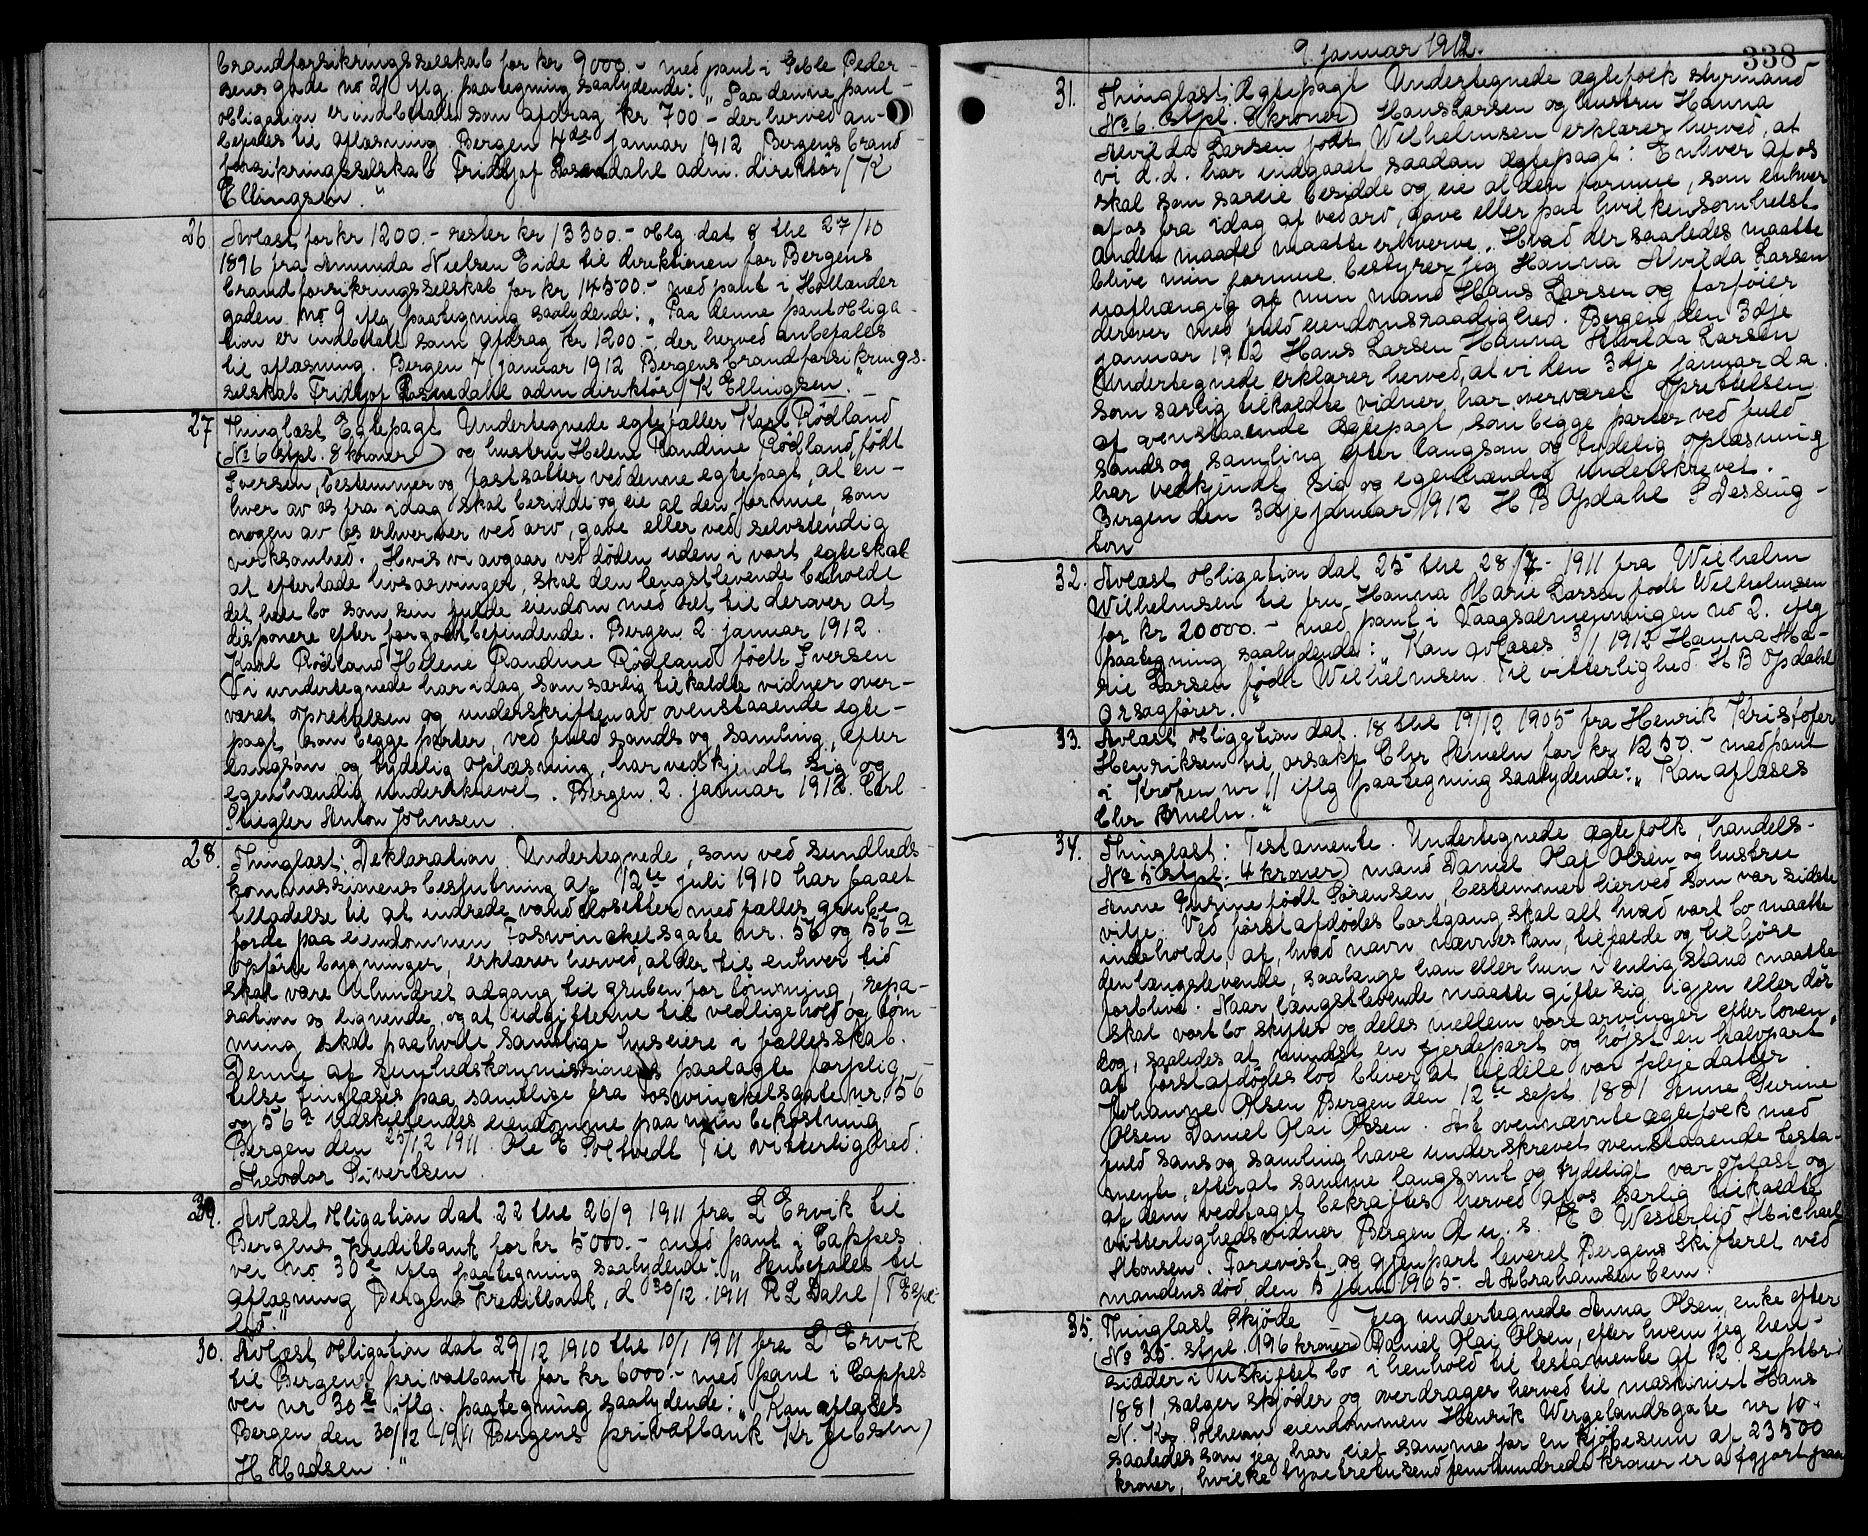 brandforsikringsselskab for kr 9000.- med pant i Geble Peder-
sens gade no 21 iflg. paategning saalydende: „Paa denne pant-
obligation er indbetalt som afdrag kr 700 - der herved an-
befales til aflæsning. Bergen 4de Januar 1912 Bergens brand
forsikringsselskab Fridtjof Rosendahl adm. direktør / K
Ellingsen."
26 Avlæst for kr 1200.- rester kr 13300.- oblg dat 8 thl 27/10
1896 fra Amunda Nielsen Eide til direktionen for Bergens
brandforsikringsselskab for kr 14500.- med pant i Hollænder
gaden no 9 iflg paategning saalydende: „Paa denne pantobliga-
tion er indbetalt som afdrag kr 1200.- der herved anbefales
til aflæsning. Bergen 7 januar 1912 Bergens brandforsikrings-
selskab Fridtjof Rosendahl adm direktør / K Ellingsen."
27 Thinglæst Egtepagt Undertegnede egtefæller Karl Rødland
(No 6 stpl. 8 kroner) og hustru Helene Randine Rødland, født
Iversen, bestemmer og fastsætter ved denne egtepagt, at en-
hver av os fra idag skal besidde og eie al den formue, som
nogen av os erhverver ved arv, gave eller ved selvstendig
virksomhed. Hvis vi avgaar ved døden uden i vort egteskab
at efterlade livsarvinger, skal den lengstlevende beholde
det hele bo som sin fulde eiendom med ret til derover at
disponere efter forgodtbefindende. Bergen 2 januar 1912.
Karl Rødland Helene Randine Rødland født Iversen
Vi undertegnede har idag som særlig tilkaldte vidner over-
været oprettelsen og underskriften av ovenstaaende egte-
pagt, som begge parter, ved fuld sands og samling, efter
langsom og tydelig oplæsning, har vedkjendt sig og
egenhændig underskrevet. Bergen. 2. januar 1912. Carl
Stiegler Anton Johnsen.
28. Thinglæst: Deklaration. Undertegnede, som ved sundheds
kommissionens beslutning af 12te juli 1910 har faaet
tilladelse til at indrede vandklosetter med fælles grube
forde paa eiendommen Foswinckelsgate nr. 56 og 56a
opførte bygninger, erklærer herved, at der til enhver tid
skal være uhindret adgang til gruben for tømming, repa-
ration os lignende, og at udgifterne til vedligehold og tøm-
ming skal paahvile samtlige huseiere i fællesskab.
Denne af sunhedskommissionens paalagte forplig-
telse tinglæses paa samtlige fra Foswinckelsgate nr. 56
og 56a udskillendes eiendomme paa min bekostning
Bergen den 23/12 1911. Ole E Tveltvedt Til vitterlighed:
Theodor Sivertsen.
29. Avlæst obligation dat 22 thl 26/9 1911 fra L Ervik til
Bergens kreditbank for kr 5000.- med pant i Cappes
vei no 30e iflg paategning saalydende: „Anbefales til
aflæsning Bergens kreditbank, d 30/12. 1911 R L Dahl /
30. Avlæst obligation dat 29/12 1910 thl 10/1 1911 fra L Ervik
til Bergens privatbank for kr 6000.- med pant i Cappes
vei nr 30e iflg. paategning saalydende: „Kan aflæses
Bergen den 30/12 1911 Bergens privatbank Kr Jebsen /
H Madsen."
9 Januar 1912.
338
31. Thinglæst: Ægtepagt Undertegnede ægtefolk styrmand
(No 6. stpl. 8 kroner) Hans Larsen og hustru Hanna
Alvilda Larsen født Wilhelmsen erklærer herved, at
vi d.d. har indgaaet saadan ægtepagt: Enhver af os
skal som særeie besidde og eie al den formue, som enhver
af os fra idag af ved arv, gave eller paa hvilkensomhelst
anden maade maatte erhverve. Hvad der saaledes maatte
blive min formue bestyrer jeg Hanna Alvilda Larsen
uafhængig af min mand Hans Larsen og forføier
derover med fuld eiendomsraadighed. Bergen, den 3dje
januar 1912 Hans Larsen Hanna Alvilda Larsen
Undertegnede erklærer herved, at vi den 3dje januar d.a.
som særlig tilkaldte vidner har overværet oprettelsen
af ovenstaaende ægtepagt, som begge parter ved fuld
sands og samling efter langsom og tydelig oplæsning
har vedkjendt sig og egenhændig underskrevet.
Bergen den 3dje januar 1912 H B Opdahl P Dessing-
ton
32. Avlæst obligation dat 25 thl 28/7- 1911 fra Wilhelm
Wilhelmsen til fru Hanna Marie Larsen født Wilhelmsen
for kr 20000.- med pant i Vaagsalmenningen no 2. iflg
paategning saalydende: „Kan avlæses 3/1 1912 Hanna Ma-
rie Larsen født Wilhelmsen. Til vitterlighed: H B Opdahl
orsagfører."
33. Avlæst obligation dat. 18 thl 19/12 1905 fra Henrik Kristofer
Henriksen til orsakf Chr Ameln for kr 1250.- med pant
i Kroken nr 11 iflg paategning saalydende: „Kan aflæses
Chr Ameln."
34. Thinglæst: Testamente. Undertegnede ægtefolk, handels-
(No 5 stpl. 4 kroner) mand Daniel Olai Olsen og hustru
Anne Gurine født Sørensen, bestemmer herved som vor sidste
vilje. Ved førstafdødes bortgang skal alt hvad vort bo maatte
indeholde, af, hvad navn nævnes kan, tilfalde og tilhøre
den længstlevende, saalænge han eller hun i enlig stand maatte
forblive. Naar længstlevende maatte gifte sig igjen eller dør
skal vort bo skiftes og deles mellem vore arvinger efter loven,
dog, saaledes at mindst en fjerdepart og højst en halvpart
af førstafdødes lod bliver at uddele vor plejedatter
Johanne Olsen Bergen den 12te sept. 1881 Anne Gurine
Olsen Daniel Olai Olsen. At ovennævnte ægtefolk med
fuld sans og samling have underskrevet ovenstaaende testa-
mente, efterat samme langsomt og tydeligt var oplæst og
af dem vedtaget bekræftes herved af os særlig tilkaldte
vitterlighedsvidner Bergen d u. s. R O Westerlid Michael
Monsen. Forevist og gjenpart leveret Bergens Skifteret ved
mandens død den 5 juni 1905- A Abrahamsen bem.
35. Thinglæst Skjøde Jeg undertegnede Anna Olsen, enke efter
(No 35. stpl. 196 kroner) Daniel Olai Olsen, efter hvem jeg hen-
sidder i uskiftet bo i henhold til testamente af 12. septbr
1881, sælger skjøder og overdrager herved til maskinist Hans
N. Kr. Polhean eiendommen Henrik Wergelandsgate nr 10-
saaledes som jeg har eiet samme for en kjøbesum af 23500
kroner, hvilke tyvetretusend femhundrede kroner er afgjort paa